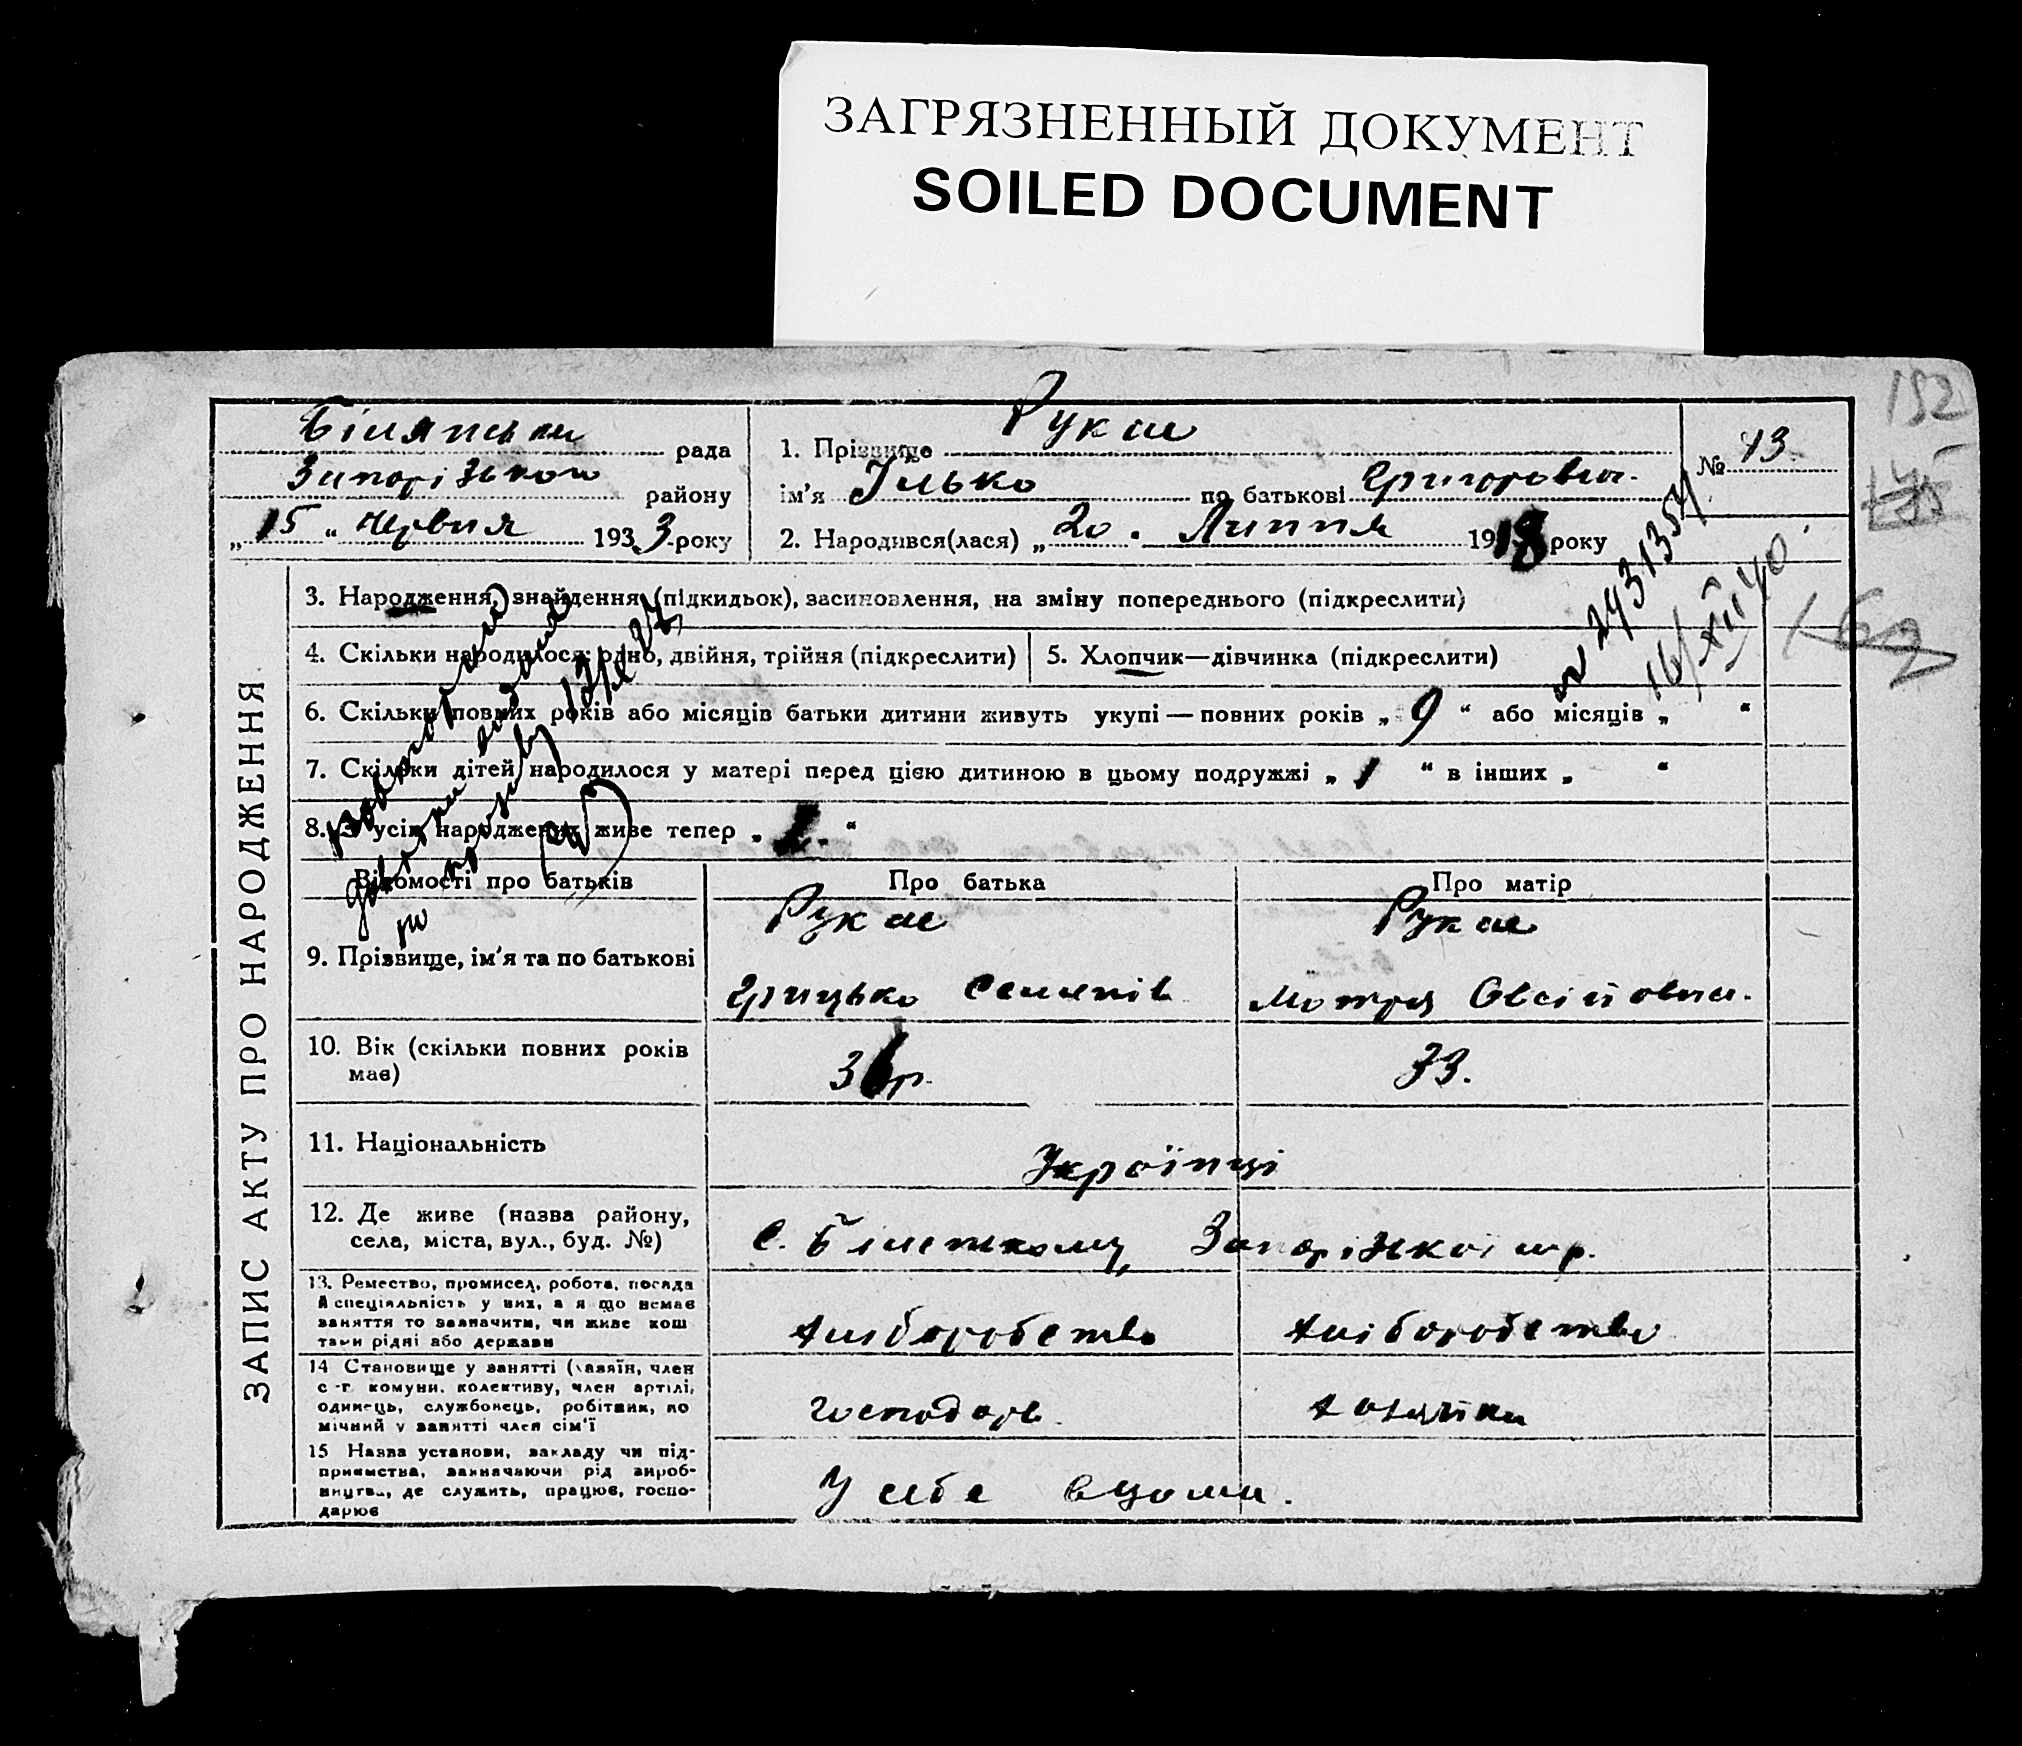 ЗАГРЯЗНЕННЫЙ ДОКУМЕНТ
SOILED DOCUMENT
192
рада
району
„ 15 “ червня 1933 року
1. Прізвище
ім'я Ілько по батькові Григорович
2. Народився(лася) „ 20 . Липня 1918 року
№ 43
ЗАПИС АКТУ ПРО НАРОДЖЕННЯ
3. Народження, знайдення (підкидьок), засиновлення, на зміну попереднього (підкреслити)
4. Скільки народилося: одно, двійня, трійня (підкреслити)
5. Хлопчик—дівчинка (підкреслити)
6. Скільки повних років або місяців батьки дитини живуть укупі — повних років „ 9 “ або місяців „ “
7. Скільки дітей народилося у матері перед цією дитиною в цьому подружжі „ 1 “ в інших „ “
8. З усіх народжених живе тепер „ “
Відомості про батьків
Про батька
Про матір
9. Прізвище, ім'я та по батькові
Грицько Семенів
Мотря Овсійовна.
10. Вік (скільки повних років має)
36 р.
33.
11. Національність
Українці
12. Де живе (назва району, села, міста, вул., буд. №)
13. Ремество, промисел, робота, посада
й спеціяльність у них, а я що немає
заняття то зазначити, чи живе кош
тами рідні або держави
хліборобство
хліборобство
14 Становище у занятті (хазяїн, член
с -г. комуни, колективу, член артілі,
одинець, службонець, робітник, по
мічний у занятті член сім'ї
господарь.
хазяйка
15 Назва установи, закладу чи під-
приємства, зазначаючи рід вироб-
ництва, де служить, працює, госпо-
дарює
У себе вдома.
№ 2431354
16/XII 40